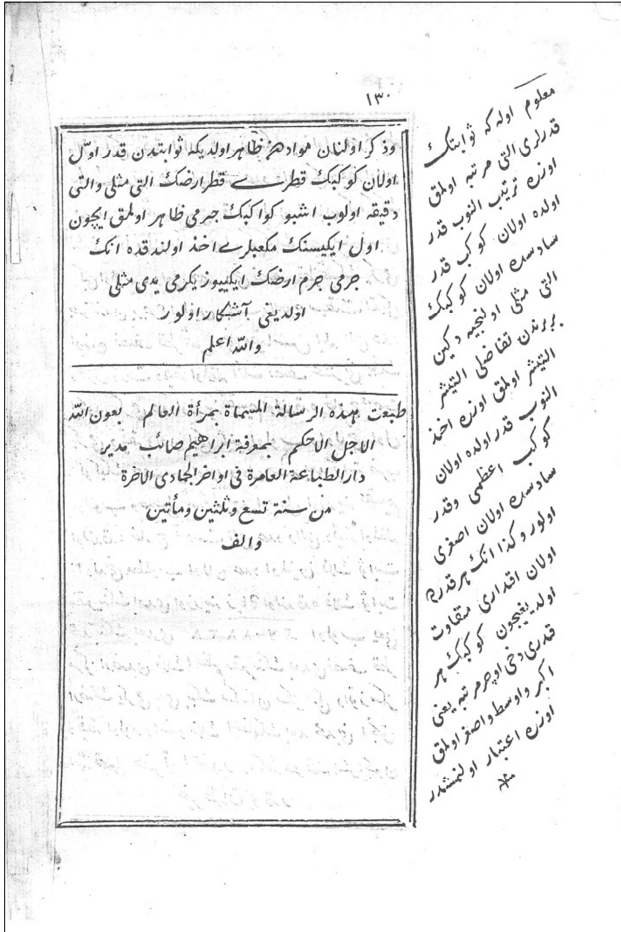 ١٣٠
وذكر اولنان موادهن ظاهر اولديكه ثوابتدن قدر اول
اولان كوكبك قطرى قطر ارضك التى مثلى والتى
دقيقه اولوب اشبو كواكبك جرمى ظاهر اولمق ايچون
اول ايكيسنك مكعبلرى اخذ اولندقده انك
جرمى جرم ارضك ايكييوز يكرمى يدى مثلى
اولديغى آشكار اولور
والله اعلم
طبعت هذه الرسالة المسماة بمرأة العالم بعون الله
الاجل الاحكم بمعرفة ابراهيم صائب مدير
دار الطباعة العامرة فى اواخر الجمادى الاخرة
من سنة تسع وثلثين ومأتين
والف
معلوم اوله كه ثوابتك
قدرلرى التى مرتبه اولمق
اوزره ترتيب النوب قدر
اولده اولان كوكب قدر
سادسده اولان كوكبك
التى مثلى اولنجيه دكين
بربرندن تفاضلى التيشر
التيشر اولمق اوزره اخذ
النوب قدر اولده اولان
كوكب اعظمى وقدر
سادسده اولان اصغرى
اولور وكذا انك هر قدرده
اولان اقدارى متفاوت
اولديغيچون كوكبك هر
قدرى دخى اوچر مرتبه يعنى
اكبر واوسط واصغر اولمق
اوزره اعتبار اولنمشدر